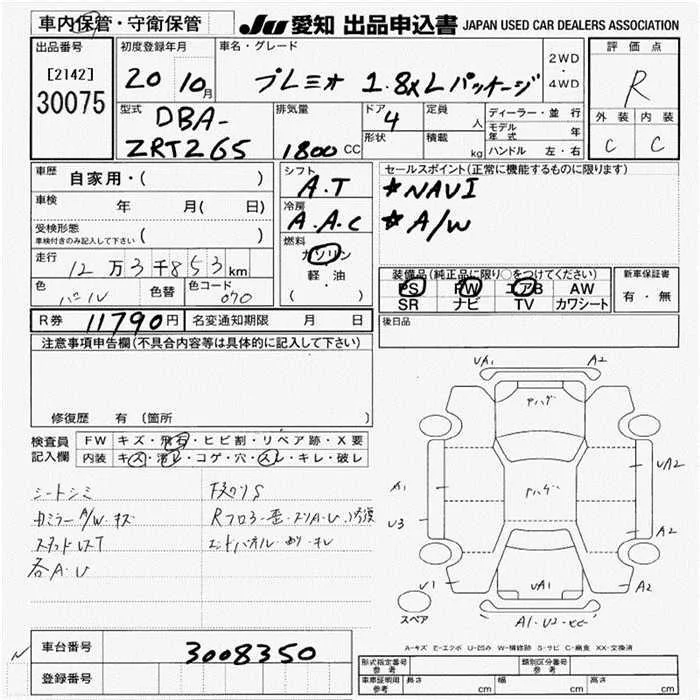 車内保管・守衛保管
JU 愛知 出品申込書 JAPAN USED CAR DEALERS ASSOCIATION
出品番号
[2142]
30075
初度登録年月
20 10月
車名・グレード
プレミオ 1.8X Lパッケージ
2WD
・
4WD
評価点
R
外装 内装
C C
型式
DBA-
ZRT265
排気量
1800CC
ドア
4
形状
定員
人
積載
kg
ディーラー・並行
モデル年式 年
ハンドル 左・右
車歴
自家用・( )
車検 年 月( 日)
受検形態
車検付きのみ記入して下さい ( )
走行 12万3千853km
色 パール 色替 色コード 070
シフト
A.T
冷房
A.A.C
燃料
ガソリン
軽・油
( )
セールスポイント(正常に機能するものに限ります)
*NAVI
*A/W
装備品(純正品に限り○をつけてください)
PS PW エアB AW
SR ナビ TV カワシート
新車保証書
有・無
R券 11790円
名変通知期限 月 日
後日品
注意事項申告欄(不具合内容等は具体的に記入して下さい)
修復歴 有 (箇所
検査員
記入欄
FW キズ・飛石・ヒビ割・リペア跡・X要
内装 キズ・汚レ・コゲ・穴・スレ・キレ・破レ
シートシミ
A/W・キズ
各A・U
UA1 A2
アハゲ
A1
アハゲ
UA2
U3
A2
U1
UA1
A2
スペア
A-キズ E-エクボ U-凹み W-補修跡 S-サビ C-腐食 XX-交換済
車台番号 3008350
登録番号
型式指定番号
参考
類別区分番号
参考
車庫証明用
参考
長さ cm 幅 cm 高さ cm